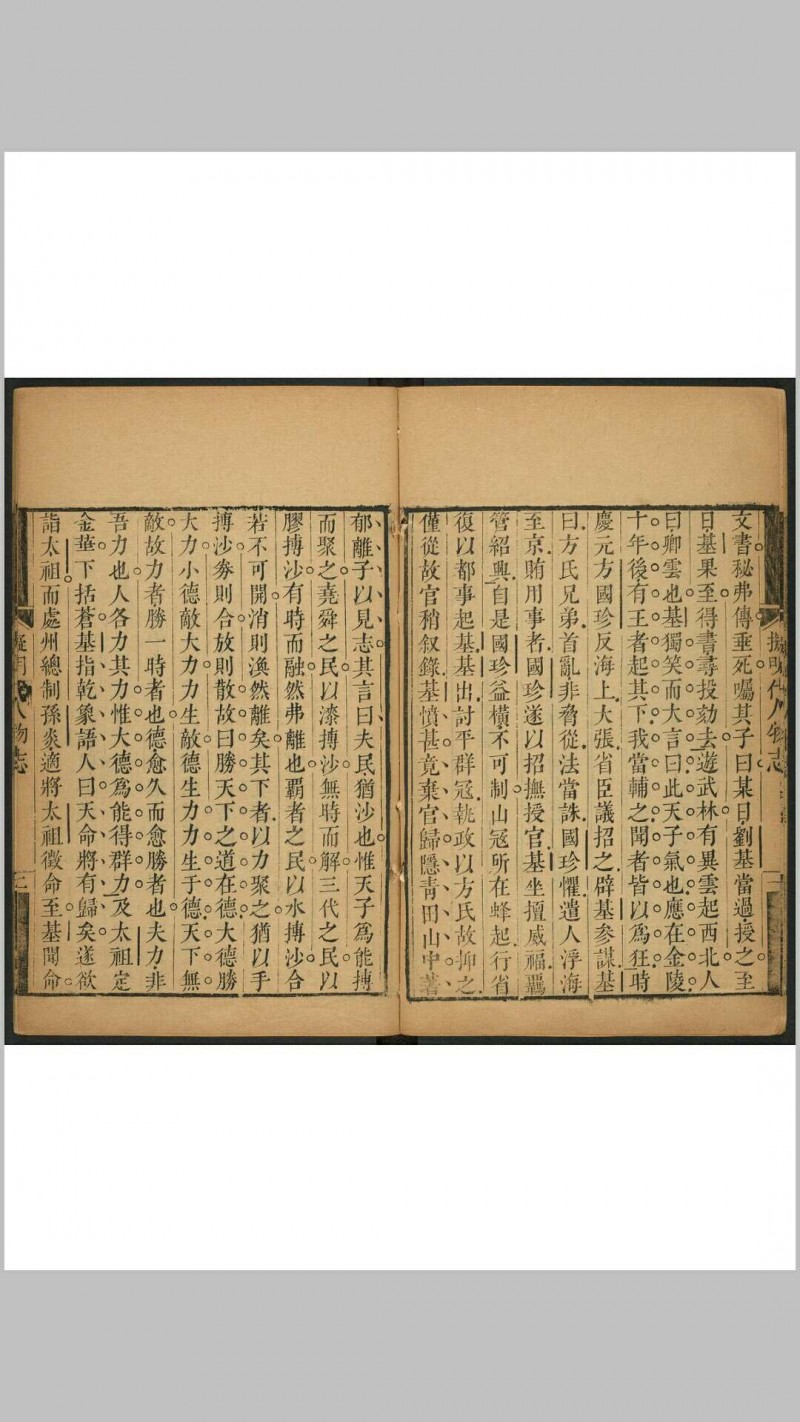 文書秘弗傳垂死囑其子曰某日劉基當過授之至
日基果至得書尋投劾去遊武林有異雲起西北人
曰卿雲也基獨笑而大言曰此天子氣也應在金陵
十年後有王者起其下我當輔之聞者皆以爲狂時
慶元方國珍反海上大張省臣議招之辟基參謀基
曰方氏兄弟首亂非脅從法當誅國珍懼遣人浮海
至京賄用事者國珍遂以招撫授官基坐擅威福羈
管紹興自是國珍益橫不可制山冦所在蜂起行省
復以都事起基基出討平群冦執政以方氏故抑之
僅從故官稍叙錄基憤甚竟棄官歸隱青田山中著
郁離子以見志其言曰夫民猶沙也惟天子爲能摶
而聚之堯舜之民以漆摶沙無時而解三代之民以
膠摶沙有時而融然弗離也覇者之民以水摶沙合
若不可開消則渙然離矣其下者以力聚之猶以手
摶沙劵則合放則散故曰勝天下之道在德大德勝
大力小德敵大力力生敵德生力力生于德天下無
敵故力者勝一時者也德愈久而愈勝者也夫力非
吾力也人各力其力惟大德爲能得群力及太祖定
金華下括蒼基指乾象語人曰天命將有歸矣遂欲
詣太祖而處州總制孫炎適將太祖徵命至基聞命
人物志
三